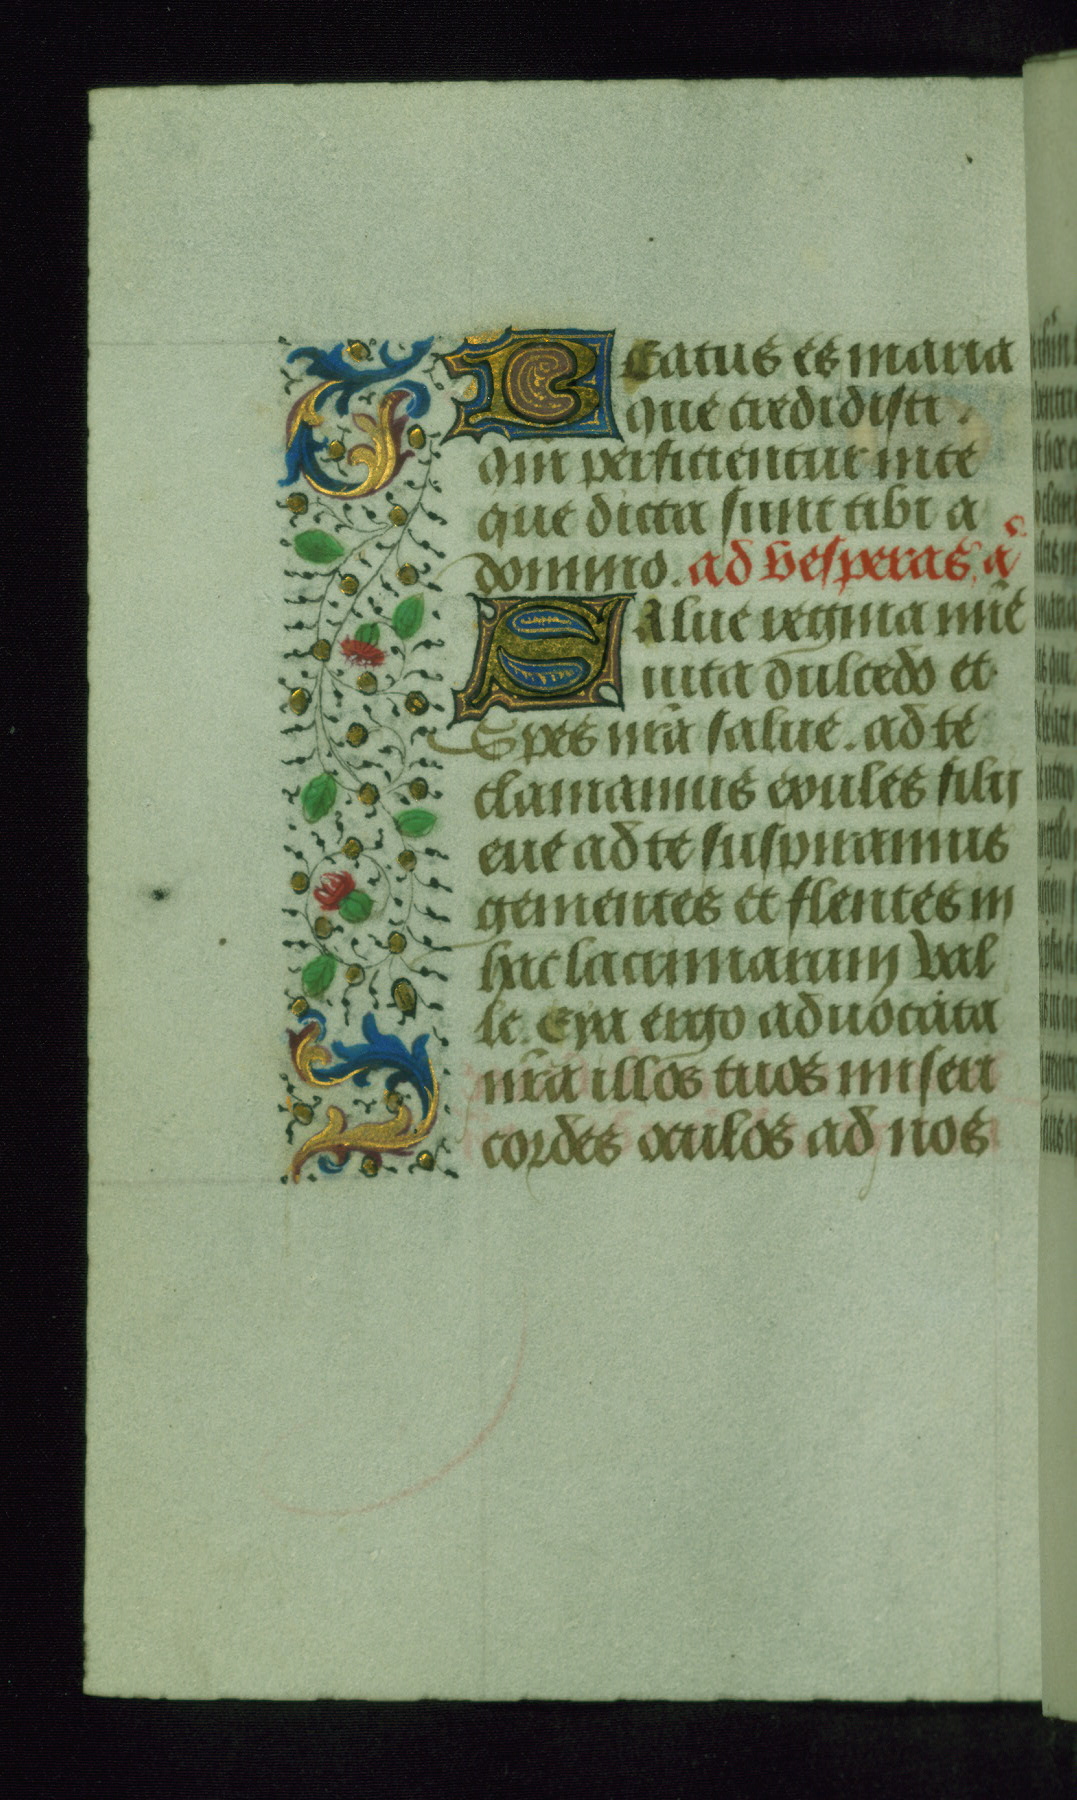 Beatus es maria
que credidisti.
qm̃ perficientur in te
que dicta sunt tibi a
domino. ad vesperas. añ
Salue regina mīe
uita dulcedo et
Spes nr̄a salue. ad te
clamamus exules filij
eue ad te suspiramus
gementes et flentes in
hac lacrimarum Val
le. Eya ergo aduocata
nr̄a illos tuos miseri
cordes oculos ad nos